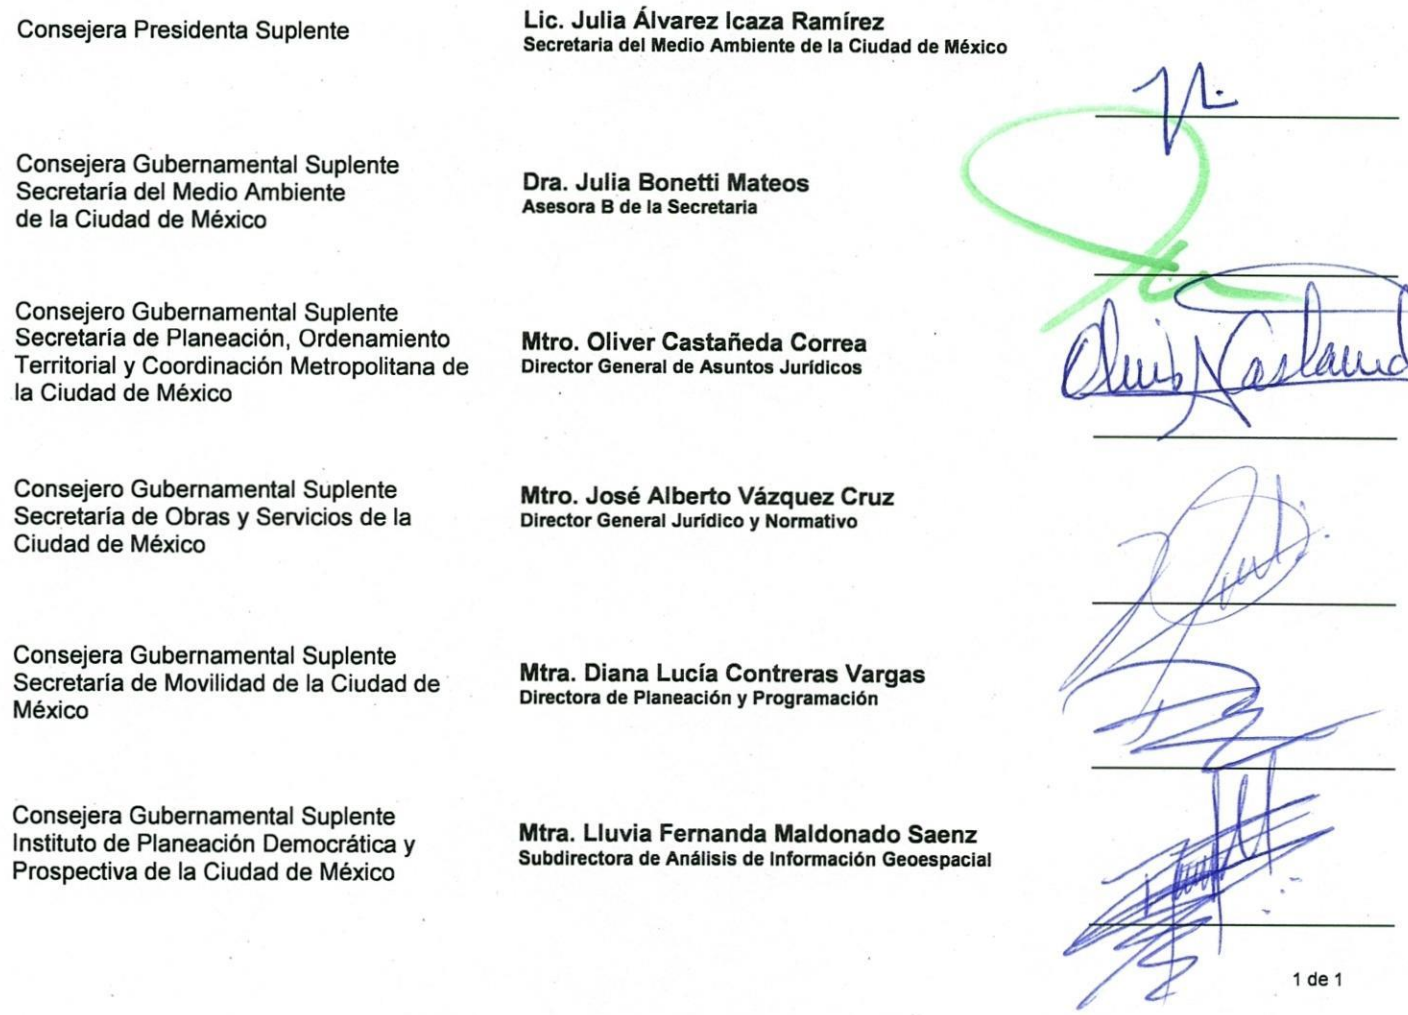 Consejera Presidenta Suplente
Lic. Julia Álvarez Icaza Ramírez
Secretaria del Medio Ambiente de la Ciudad de México
Consejera Gubernamental Suplente
Secretaría del Medio Ambiente
de la Ciudad de México
Dra. Julia Bonetti Mateos
Asesora B de la Secretaria
Consejero Gubernamental Suplente
Secretaría de Planeación, Ordenamiento
Territorial y Coordinación Metropolitana de
la Ciudad de México
Mtro. Oliver Castañeda Correa
Director General de Asuntos Jurídicos
Consejero Gubernamental Suplente
Secretaría de Obras y Servicios de la
Ciudad de México
Mtro. José Alberto Vázquez Cruz
Director General Jurídico y Normativo
Consejera Gubernamental Suplente
Secretaría de Movilidad de la Ciudad de
México
Mtra. Diana Lucía Contreras Vargas
Directora de Planeación y Programación
Consejera Gubernamental Suplente
Instituto de Planeación Democrática y
Prospectiva de la Ciudad de México
Mtra. Lluvia Fernanda Maldonado Saenz
Subdirectora de Análisis de Información Geoespacial
1 de 1